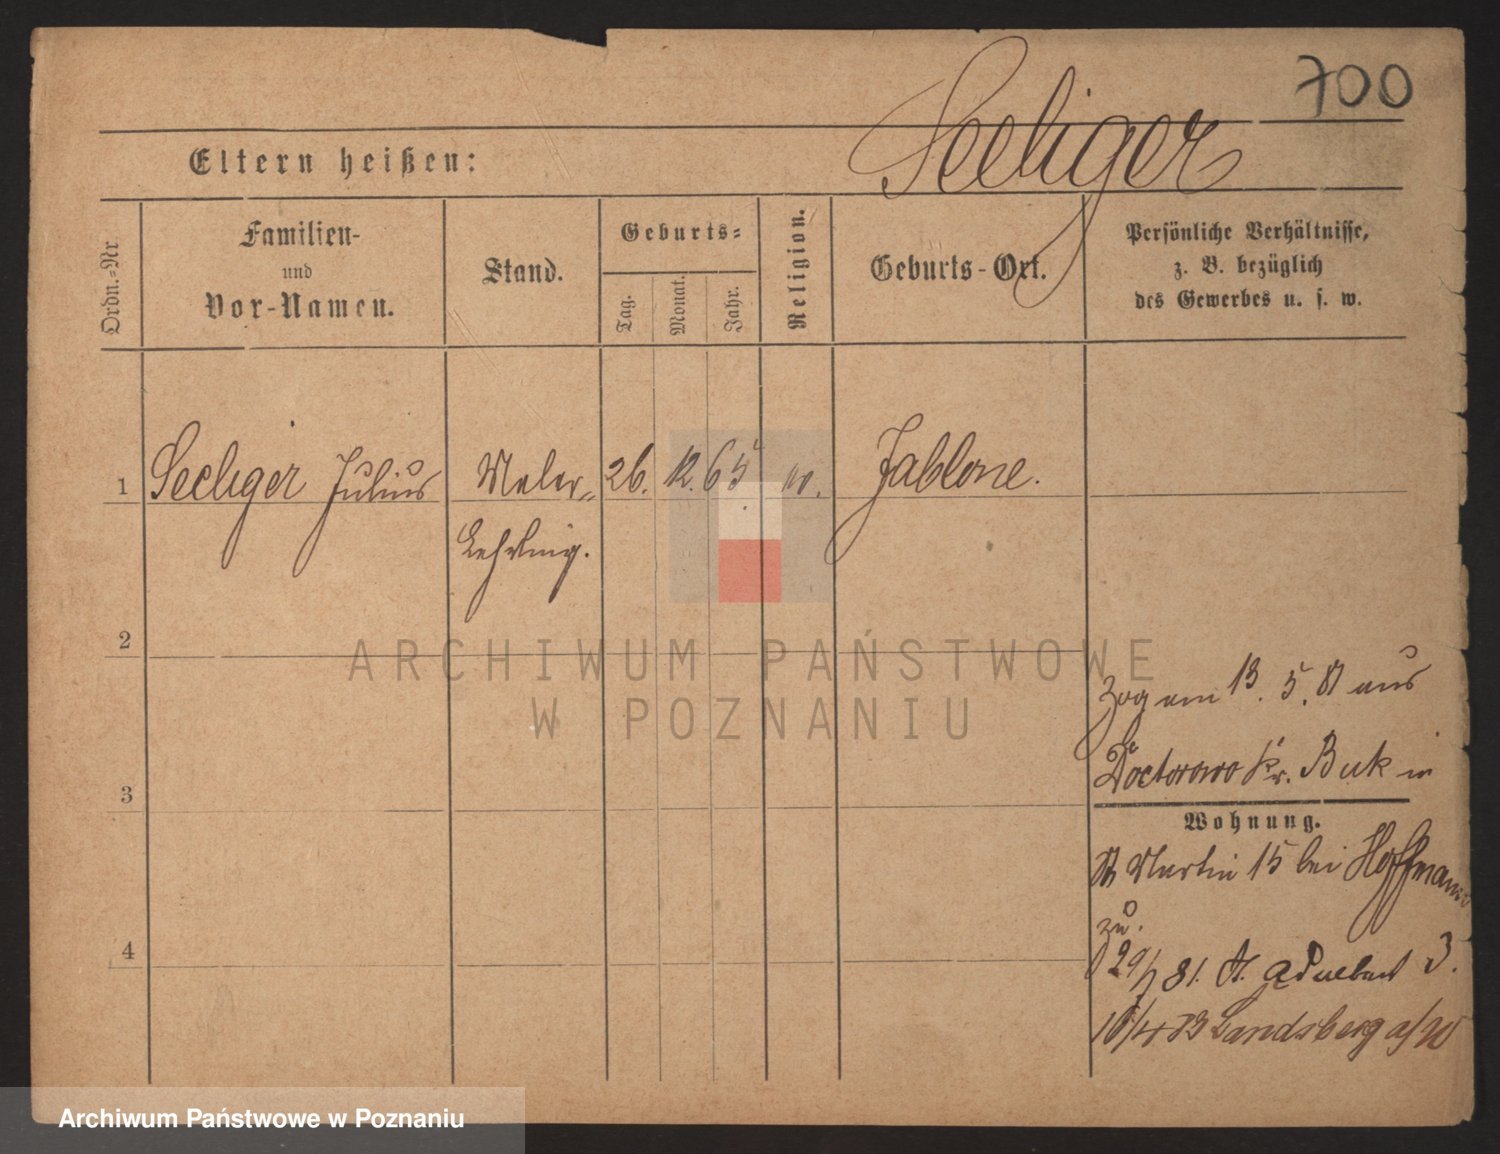 700
Seeliger
Eltern heißen:
Ordn.-Nr
Familien-
und
Vor-Namen.
Stand.
Geburts-
Tag.
Monat.
Jahr.
Religion.
Geburts-Ort.
Persönliche Verhältnisse,
z. B. bezüglich
des Gewerbes u. s. w.
1
Seeliger Julius
Maler-
Lehrling.
26.
12.
65
Jablone.
2
3
4
zog am 13. 5. 81 aus
Doctorowo Kr. Buk in
Wohnung.
St Martin 15 bei Hoffmann
zu.
29/7 81. St. Adalbert 3.
16/4 83 Landsberg a/W
ARCHIWUM PAŃSTWOWE
W POZNANIU
Archiwum Państwowe w Poznaniu